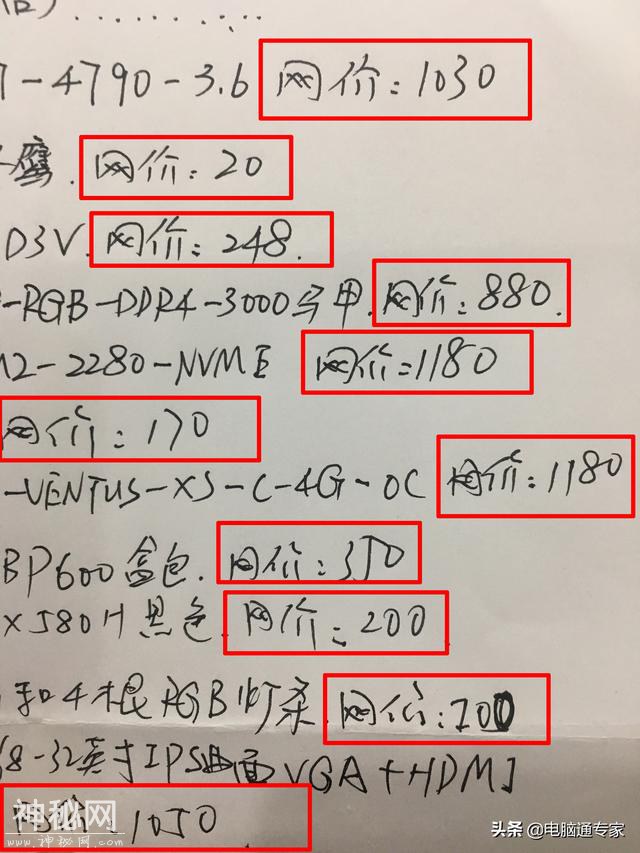 7-4790-3.6 网价:1030
鹰. 网价:20
D3V. 网价:248.
-RGB-DDR4-3000马甲. 网价:880.
M2-2280-NVME 网价:1180
网价:170
-VENTUS-XS-C-4G-OC 网价:1180
BP600盒包. 网价:350
X580H黑色. 网价:200
和4根RGB灯条. 网价:700
8-32英寸IPS曲面VGA+HDMI
网价:1050
神秘网
www.神秘网.com
头条 @电脑通专家